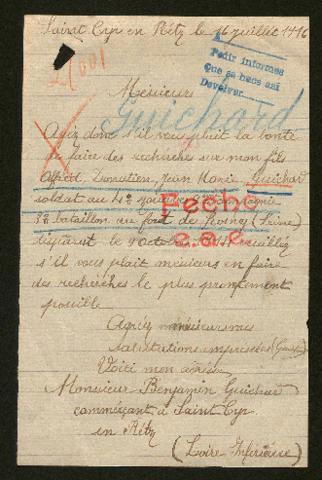 Saint Cyr en Retz le 16 juillet 1916
Pedir informes
Que se hace así
Devolver
Messieurs
Guichard
Ayez donc s'il vous plait la bonté
de faire des recherches sur mon fils
Alfred Donatien Jean Marie Guichard
soldat au 4e zouaves
Fecho
3e bataillon au fort de Rosny (Seine)
e.a.c.
disparut le 9 octobre veuillez
s'il vous plait messieurs en faire
des recherches le plus promptement
possible
Agréez messieurs mes
salutations empressées
Voici mon adresse
Monsieur Benjamin Guichard
commerçant à Saint Cyr
en Retz
(Loire Inférieure)